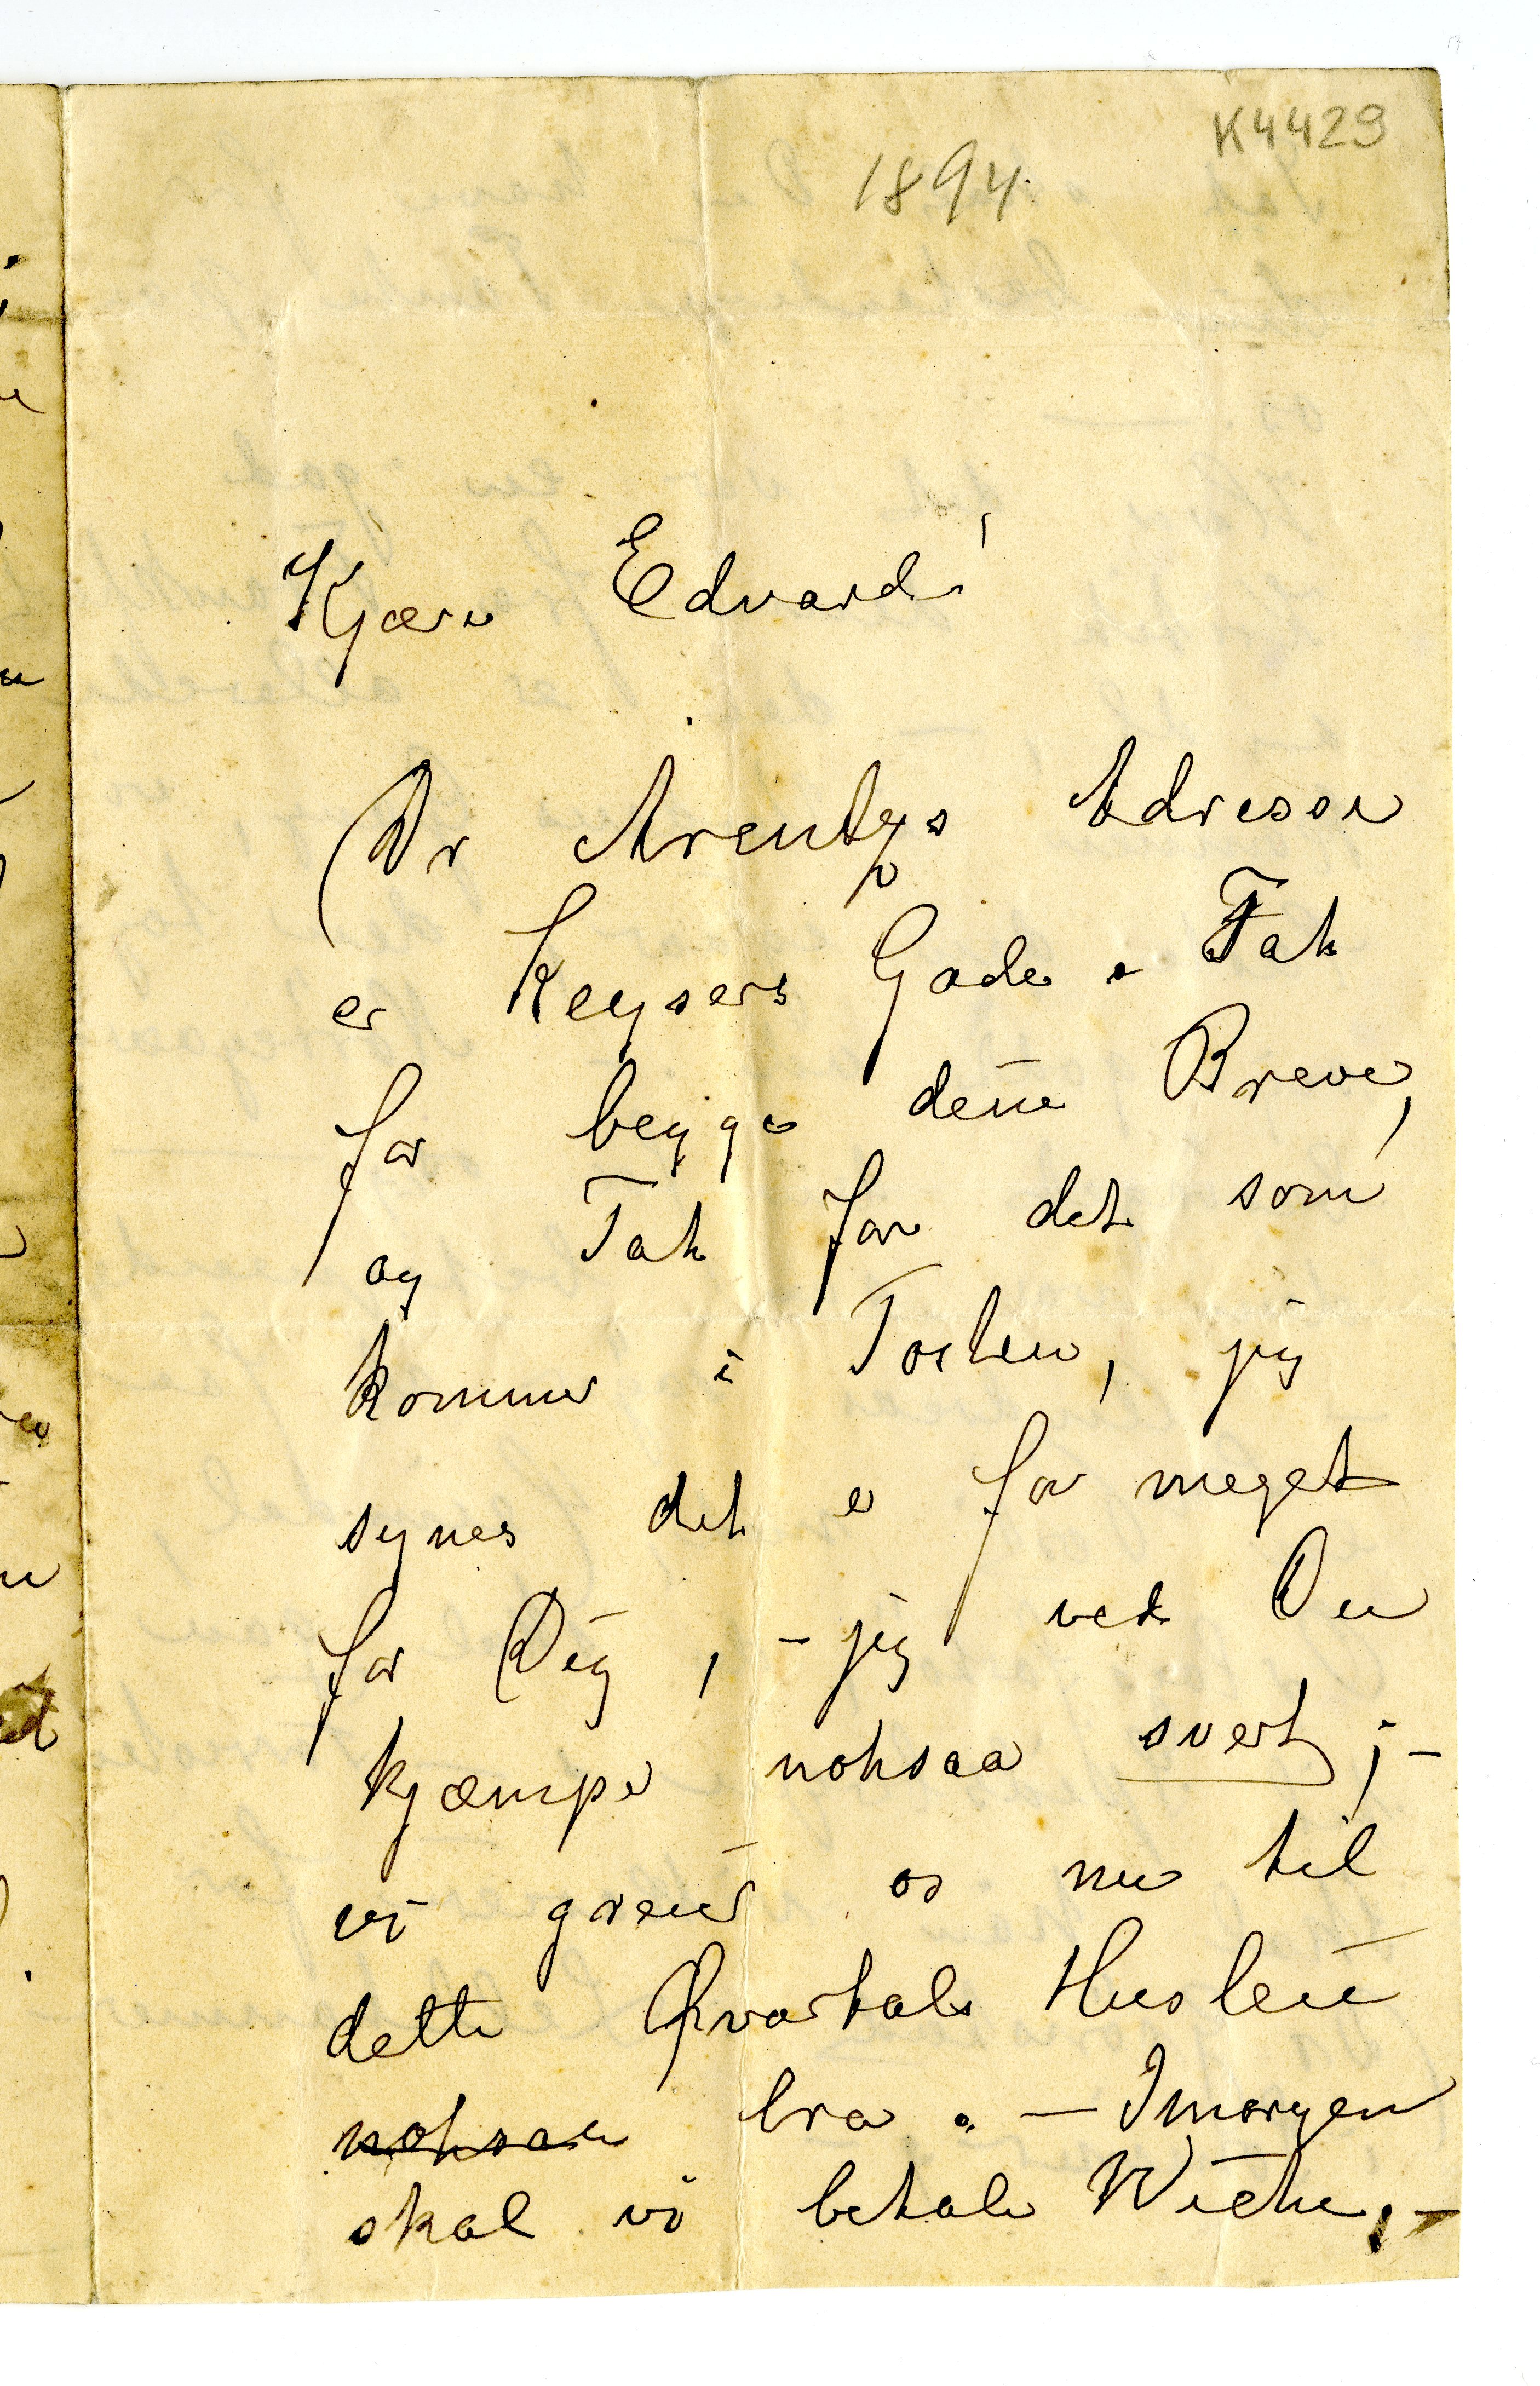 K4429
1894.
Kjære Edvard!
Dr Arentzs Adresse
er Keysers Gade. Tak
for begge dine Breve,
og Tak for det som
kommer i Posten, jeg
synes det er for meget
for Dig, – jeg ved Du
kjæmper noksaa svert; –
vi greier os nu til
dette Qvartals Husleie
noksaa bra. – Imorgen
skal vi betale